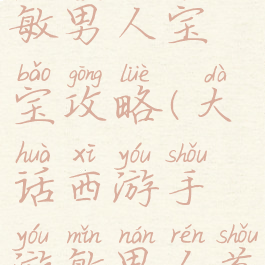 敏男人宝
bǎo gōng lüè dà
宝攻略(大
huà xī yóu shǒu
话西游手
yóu mǐn nán rén shǒu
游敏男人首